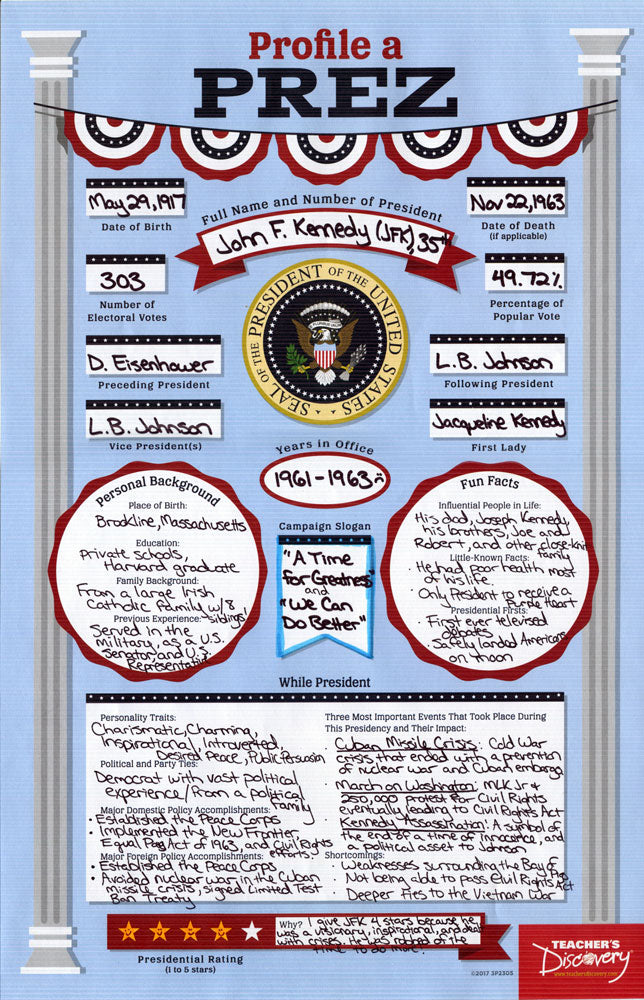 Profile a
PREZ
May 29, 1917
Date of Birth
Full Name and Number of President
John F. Kennedy (JFK), 35th
Nov 22, 1963
Date of Death
(if applicable)
303
Number of
Electoral Votes
SEAL OF THE PRESIDENT OF THE UNITED STATES
49.72%
Percentage of
Popular Vote
D. Eisenhower
Preceding President
L.B. Johnson
Following President
L.B. Johnson
Vice President(s)
Jacqueline Kennedy
First Lady
Years in Office
1961-1963
Personal Background
Place of Birth:
Brookline, Massachusetts
Education:
Private schools,
Harvard graduate
Family Background:
From a large Irish
Catholic family w/8
siblings!
Previous Experience:
Served in the
military, as a U.S.
Senator, and U.S.
Representative
Campaign Slogan
"A Time
for Greatness"
and
"We Can
Do Better"
Fun Facts
Influential People in Life:
His dad, Joseph Kennedy,
his brothers, Joe and
Robert, and other close-knit
family
Little-Known Facts:
· He had poor health most
of his life.
· Only President to receive a
Purple Heart
Presidential Firsts:
· First ever televised
debates
· Safely landed Americans
on moon
While President
Personality Traits:
Charismatic, Charming,
Inspirational, Introverted,
Desired Peace, Public Persuasion
Political and Party Ties:
Democrat with vast political
experience/from a political
family
Major Domestic Policy Accomplishments:
· Established the Peace Corps
· Implemented the New Frontier
Equal Pay Act of 1963, and Civil Rights
efforts
Major Foreign Policy Accomplishments:
· Established the Peace Corps
· Avoided nuclear war in the Cuban
missile crisis, signed Limited Test
Ban Treaty
Three Most Important Events That Took Place During
This Presidency and Their Impact:
· Cuban Missile Crisis: Cold War
crisis that ended with a prevention
of nuclear war and Cuban embargo
· March on Washington: MLK Jr +
250,000 protest for Civil Rights
eventually leading to Civil Rights Act
· Kennedy Assassination: A symbol of
the end of a time of innocence, and
a political asset to Johnson
Shortcomings:
· Weaknesses surrounding the Bay of Pigs
· Not being able to pass Civil Rights Act
· Deeper ties to the Vietnam War
Presidential Rating
(1 to 5 stars)
Why? I give JFK 4 stars because he
was a visionary, inspirational, and dealt
with crises. He was robbed of the
time to do more.
©2017 3P2305
TEACHER'S
Discovery
www.teachersdiscovery.com